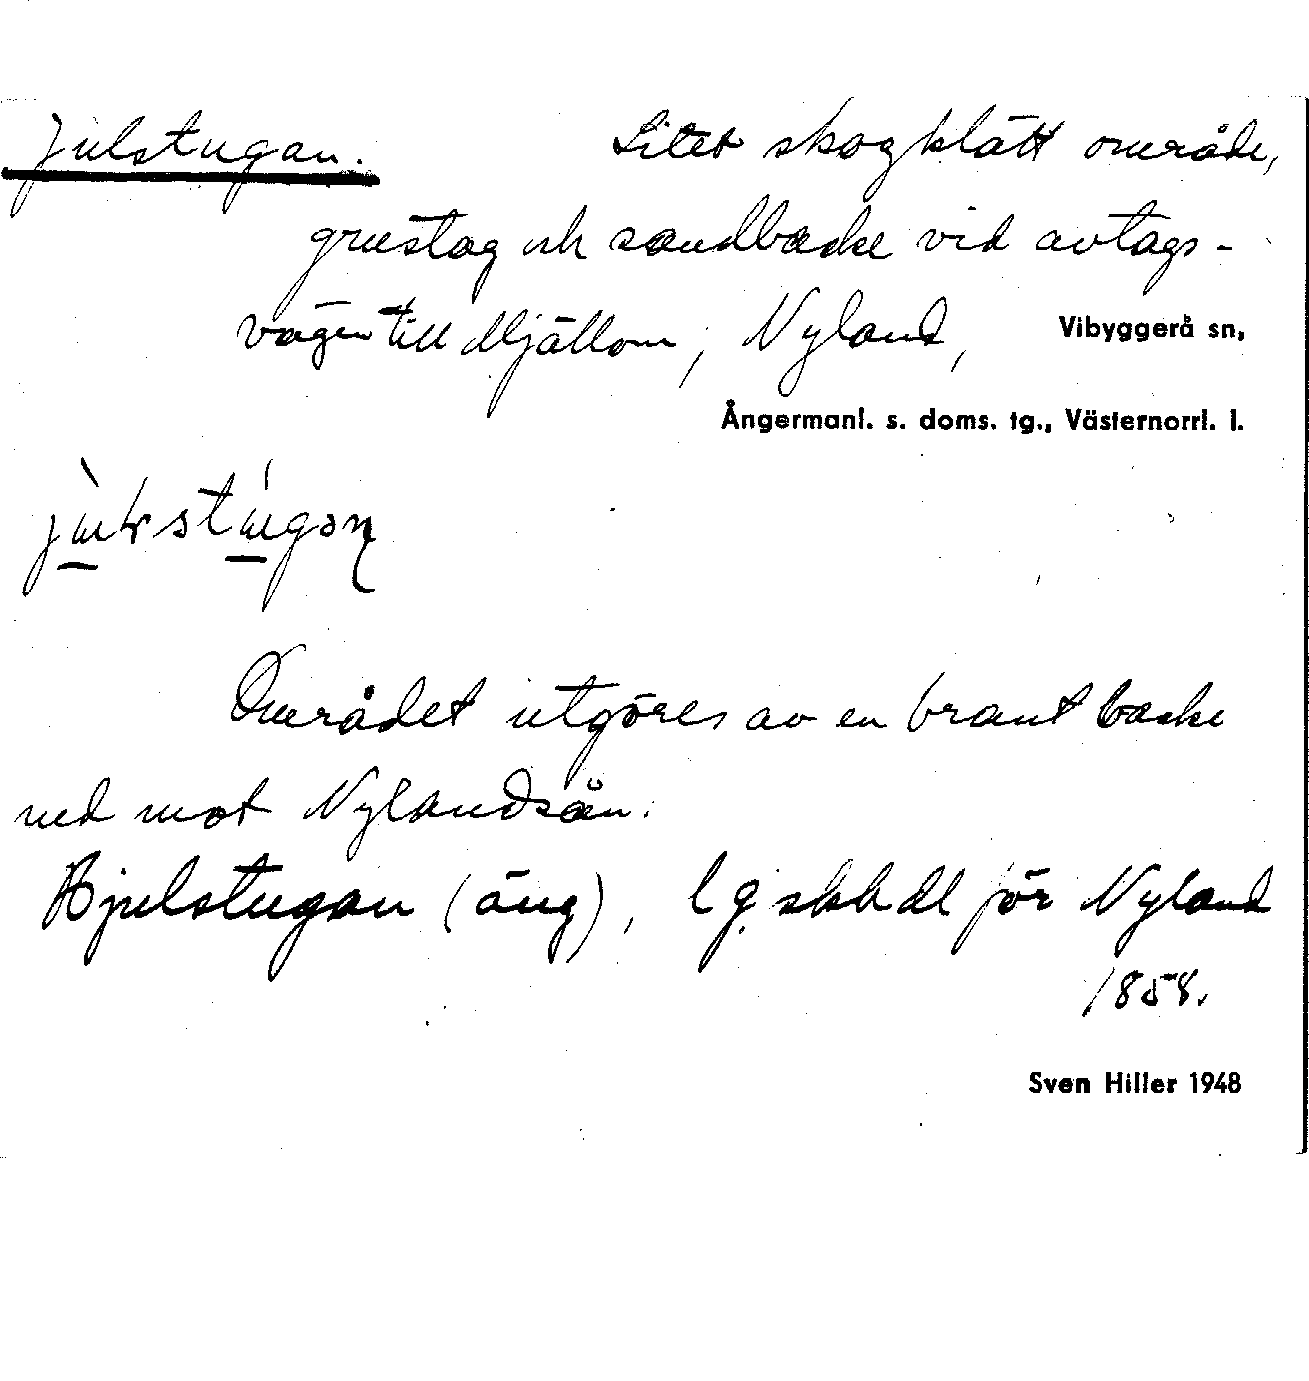 Julstugan. Litet skogklätt område,
grustag och sandbacke vid avtags-
vägen till Mjällom, Nyland, Vibyggerå sn,
Ångermanl. s. doms. tg., Västernorrl. l.
Området utgöres av en brant backe
ned mot Nylandsån.
Hjulstugan (äng), lg skhdl för Nyland
1858.
Sven Hiller 1948